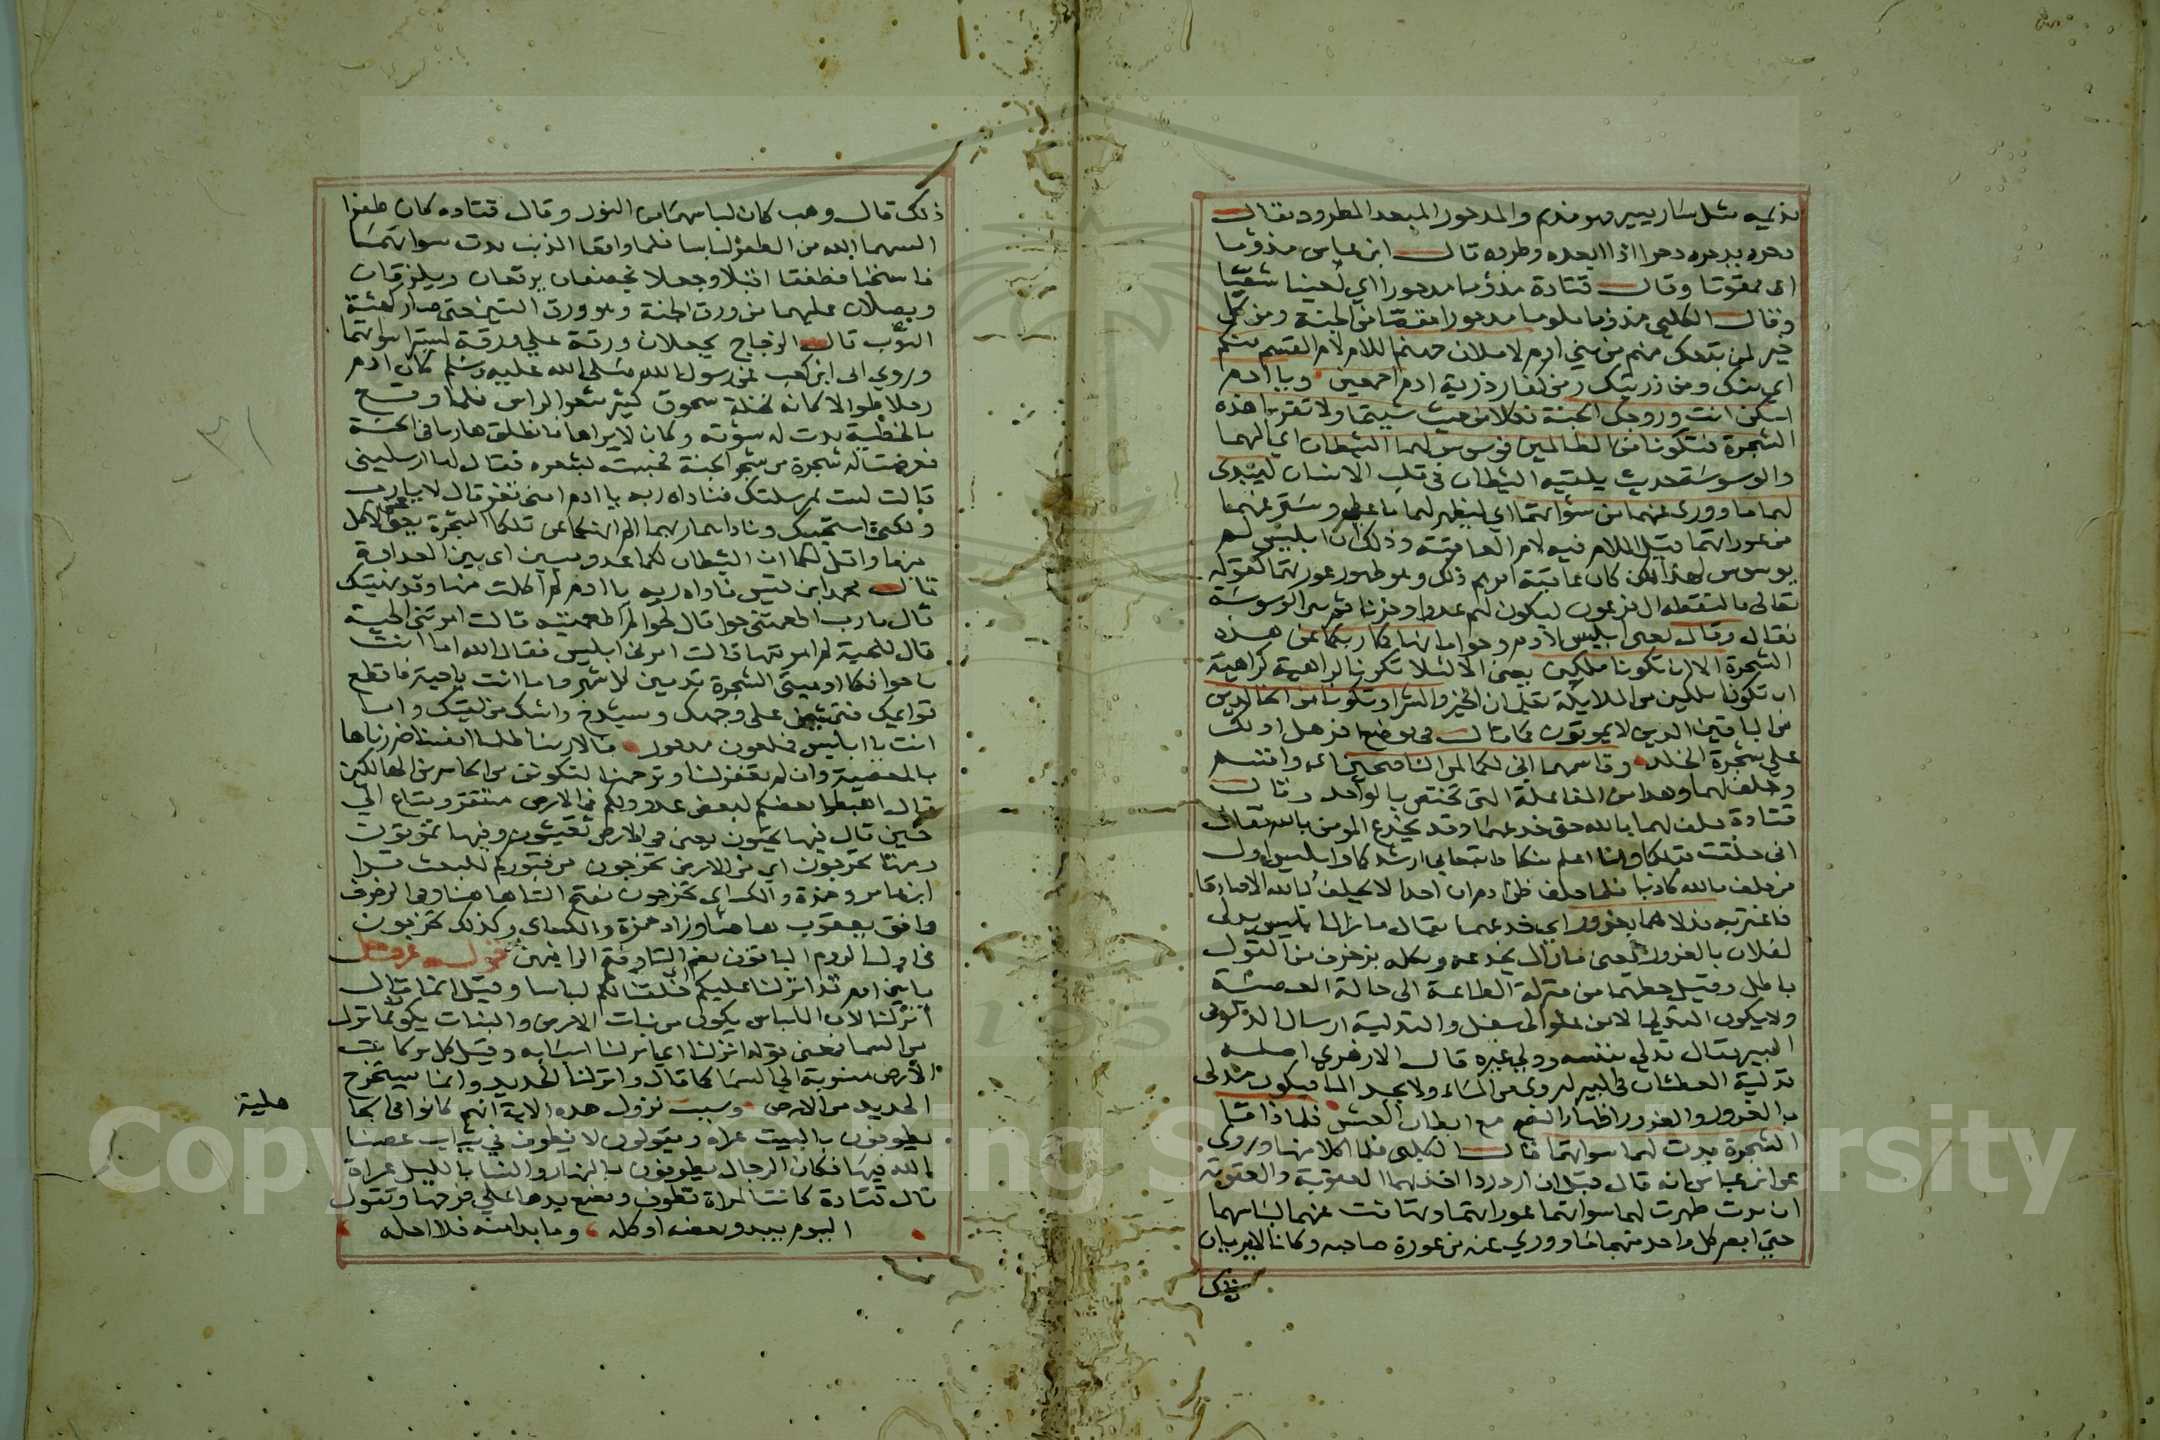 يذيمه مثل سار يسير فهو مذيم والمدحور المبعد المطرود يقال
دحره يدحره دحرا اذا ابعده وطرده قال ابن عباس مذؤما
اى ممقوتا وقال قتادة مذؤما مدحورا اي لعينا شقيا
وقال الكلبى مذؤما ملوما مدحورا مقصيا من الجنة ومن كل
خير لمن تبعك منهم من بني ادم لاملان جهنم اللام لام القسم منكم
اي منك ومن ذريتك ومن كفار ذرية ادم اجمعين وياادم
اسكن انت وزوجك الجنة فكلا من حيث شيتما ولا تقربا هذه
الشجرة فتكونا من الظالمين فوسوس لهما الشيطان اي اليهما
والوسوسة حديث يلقيه الشيطان في قلب الانسان ليبدى
لهما ما وورى عنهما من سؤاتهما اي ليظهر لهما ما غطى وستر عنهما
من عوراتهما قيل اللام فيه لام العاقبة وذلك ان ابليس لم
يوسوس لهذا لكن كان عاقبة امرهم ذلك وهو ظهور عورتهما كقوله
تعالى فالتقطه ال فرعون ليكون لهم عدوا وحزنا ثم بين الوسوسة
فقال وقال يعنى ابليس لادم وحوا ما نهاكما ربكما عن هذه
الشجرة الا ان تكونا ملكين يعنى الا لئلا تكونا كراهية
ان تكونا ملكين من الملايكة تعلمان الخير والشر او تكونا من الخالدين
من الباقين الذين لا يموتون كما قال في موضع اخر هل ادلك
على شجرة الخلد وقاسمهما انى لكما لمن الناصحين اى واقسم
وحلف لهما وهذا من المفاعلة التى تختص بالواحد وقال
قتادة حلف لهما بالله حتى خدعهما وقد يخدع المومن بالله فقال
انى خلقت قبلكما وانا اعلم منكما فاتبعانى ارشدكما وابليس اول
من حلف بالله كاذبا فلما حلف ظن ادم ان احدا لا يحلف بالله الا صادقا
فاغتر به فدلاهما بغرور اي خدعهما يقال ما زال ابليس يدلى
لفلان بالغرور يعنى ما زال يخدعه ويكلمه بزخرف من القول
باطل وقيل حطهما من منزلة الطاعة الى حالة المعصية
ولا يكون التدلى الا من علو الى سفل والتدلية ارسال الدلو فى
البير يقال تدلى بنفسه ودلى غيره قال الازهري اصله
تدلية العطشان فى البير ليروى من الماء ولا يجد الما فيكون مدلى
بالغرور والغرور اظهار النصح مع ابطان الغش فلما ذاقا
الشجرة بدت لهما سواتهما قال الكلبى فلما اكلا منها وروى
عن ابن عباس انه قال قبل ان ازدردا اخذتهما العقوبة والعقوبة
ان بدت ظهرت لهما سواتهما عوراتهما وتهافت عنهما لباسهما
حتي ابصر كل واحد منهما ما ووري عنه من عورة صاحبه وكانا لا يريان
ذلك
ذلك قال وهب كان لباسهما من النور وقال قتاده كان ظفرا
البسهما الله من الظفر لباسا فلما واقعا الذنب بدت سواتهما
فاستحيا فطفقا اقبلا وجعلا يخصفان يرقعان ويلزقان
ويصلان عليهما من ورق الجنة وهو ورق التين حتى صار كهيئة
الثوب قال الزجاج يجعلان ورقة على ورقة ليسترا سواتهما
وروي ابى ابن كعب عن رسول الله صلى الله عليه وسلم كان ادم
رجلا طوالا كانه نخلة سحوق كثير شعر الراس فلما وقع
بالخطية بدت له سؤته وكان لا يراها فانطلق هاربا فى الجنة
فعرضت له شجرة من شجر الجنة فحبسته بشعره فقال لها ارسلينى
قالت لست بمرسلتك فناداه ربه يا ادم امنى تفر قال لا يارب
ولكنى استحيتك وناداهما ربهما الم انهكما عن تلكما الشجرة يعنى الاكل
منها واقل لكما ان الشيطان لكما عدو مبين اى بين العداوة
قال محمد ابن قيس ناداه ربه يا ادم لم اكلت منها وقد نهيتك
قال يارب اطعمتنى حوا قال لحوا لم اطعمتيه قالت امرتنى الحية
قال للحية لم امرتها قالت امرنى ابليس فقال الله اما انت
يا حوا فكما ادميت الشجرة تدمين كل شهر واما انت يا حية فاقطع
قوايمك فتمشين على وجهك وسيشدخ راسك من لقيك واما
انت يا ابليس فملعون مدحور قالا ربنا ظلمنا انفسنا ضررناها
بالمعصية وان لم تغفر لنا وترحمنا لنكونن من الخاسرين الهالكين
قال اهبطوا بعضكم لبعض عدو ولكم فى الارض مستقر ومتاع الي
حين قال فيها تحيون يعنى فى الارض تعيشون وفيها تموتون
ومنها تخرجون اي من الارض تخرجون من قبوركم للبعث قرا
ابن عامر وحمزة والكساى تخرجون بفتح التا هاهنا وفى الزخرف
وافق يعقوب هاهنا وزاد حمزة والكساى وكذلك تخرجون
فى اول الروم الباقون بضم التا وفتح الرا فيهن قوله عز وجل
يا بنى ادم قد انزلنا عليكم خلقنا لكم لباسا وقيل انما قال
انزلنا لان اللباس يكون من نبات الارض والنبات يكون بما نزل
من السما فمعنى قوله انزلنا اي انزلنا اسبابه وقيل كل بركات
الارض منسوبة الى السما كما قال وانزلنا الحديد وانما يستخرج
الحديد من الارض وسبب نزول هذه الاية انهم كانوا فى الجا
هلية
يطوفون بالبيت عراة ويقولون لا نطوف في ثياب عصينا
الله فيها فكان الرجال يطوفون بالنهار والنسا بالليل عراة
قال قتادة كانت المراة تطوف وتضع يدها على فرجها وتقول
اليوم يبدو بعضه او كله وما بدا منه فلا احله
Copyright © King Saud University
1957